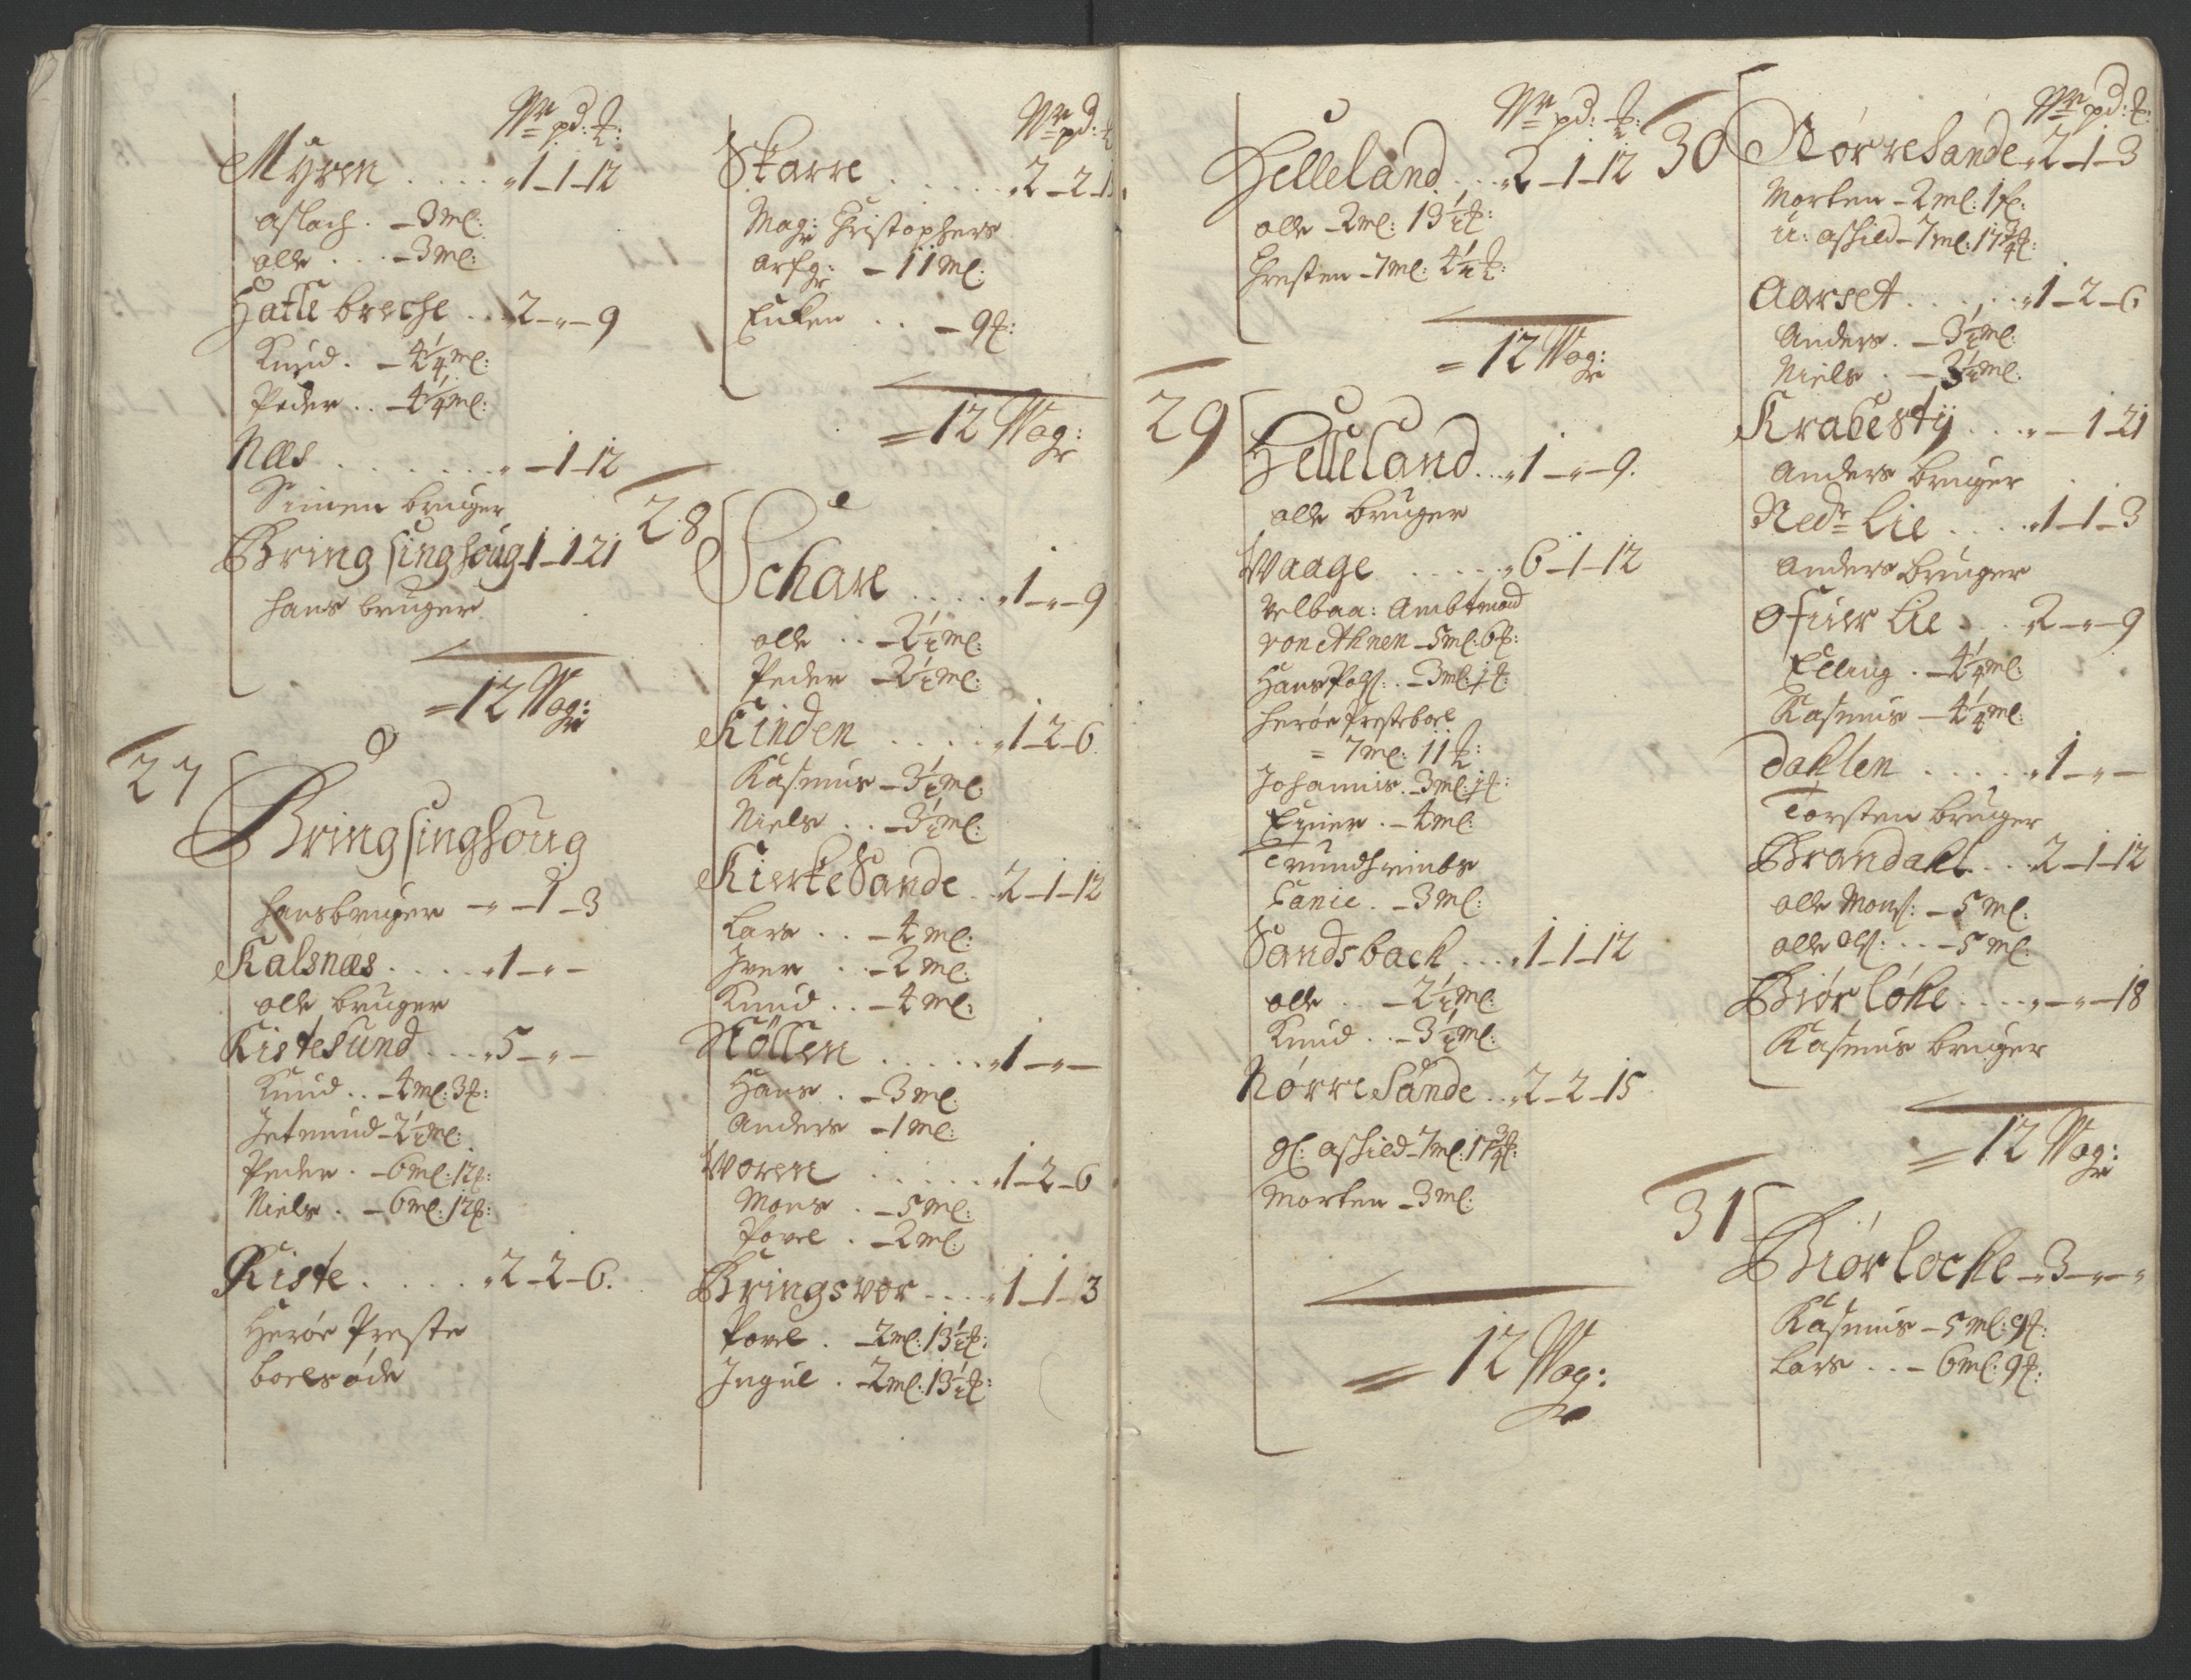 Wr pd: ℔:
Myren . . . . 1-1-12
aslach . - 3ml:
olle . . . - 3ml:
Hatle breche . . 2-"-9
Knud . - 4¼ml:
Peder . . - 4¼ml:
Næs . . . . . . . "-1-12
Simen bruger
Bringsinghoug 1-1-21
hans bruger
= 12 Wog:
27
Bringsinghoug
hans bruger -"-1-3
Kalsnæs . . . . . 1-"-
olle bruger
Kistesund . . . . 5-"-
Knud . . - 4ml: 3℔:
Jetmund - 2½ml:
Peder . - 6ml: 12℔:
Niels . - 6ml: 12℔:
Kiste . . . . . 2-2-6.
Herøe Preste
boels øde
Wr pd: ℔
Skarre . . . . . 2-2-1
Mag: Christophers
arfg: - 11ml:
Enken . . - 9℔:
= 12 Wog:
28
Schare . . . . . 1-"-9
olle . . - 2½ml:
Peder - 2½ml:
Kinden . . . . . 1-2-6.
Rasmus - 3½ml:
Niels . . - 3½ml:
Kierke Sande . 2-1-12
Lars . . - 4ml:
Iver . . - 2ml:
Knud . . - 4ml:
Støllen . . . . . 1-"-
Hans . - 3ml:
Anders - 1ml:
Woren . . . . . 1-2-6
Mons . - 5ml:
Povel . - 2ml:
Bringsvor . . . . 1-1-3
Povel . - 2ml: 13½℔:
Ingul . - 2ml: 13½℔:
Wr pd: ℔:
Helleland . . . 2-1-12
olle - 2ml: 13½℔:
Chresten - 7ml: 4½℔:
= 12 Wog:
29
Helleland . . . 1-"-9.
olle bruger
Waage . . . . . 6-1-12
Velbaa: Ambtmand
von Ahnen - 5ml: 6℔:
Hans Pols: . - 3ml: j℔:
herøe Presteboel
= 7ml: 11℔:
Johannis . 3ml: j℔:
Einer . - 4ml:
Trundheimbs
Canic . - 3ml:
Sandsback . . . . 1-1-12
olle . . - 2½ml:
Knud . . - 3½ml:
Nørre Sande . . 2-2-15
gl: Ashild - 7ml: 17¾℔:
Morten - 3ml:
= 12 Wog:
Wr pd: ℔:
30
Nørre Sande . 2-1-3
Morten - 2ml: 1℔:
u: Ashild - 7ml: 17¾℔:
Aarset . . . . . 1-2-6
Anders . - 3½ml:
Niels . - 3½ml:
Krabestij . . . "-1-21
Anders bruger
Nedr Lie . . . . 1-1-3
Anders bruger
Ofuer Lie . . . 2-"-9
Elling . - 4¼ml:
Rasmus - 4¼ml:
Dahlen . . . . . 1-"-
Torsten bruger
Brandahl . . . 2-1-12
olle Mons: - 5ml:
olle ols: . . - 5ml:
Biørløke . . . . "-"-18
Rasmus bruger
= 12 Wog:
31
Biørlocke - 3-"-"
Rasmus - 5ml: 9℔:
Lars . . - 6ml: 9℔: